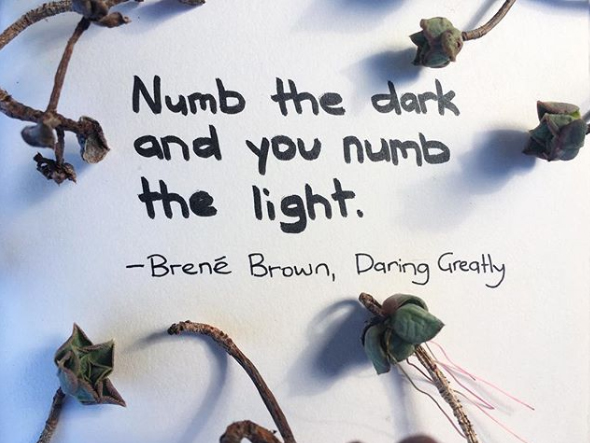 Numb the dark
and you numb
the light.
-Brené Brown, Daring Greatly